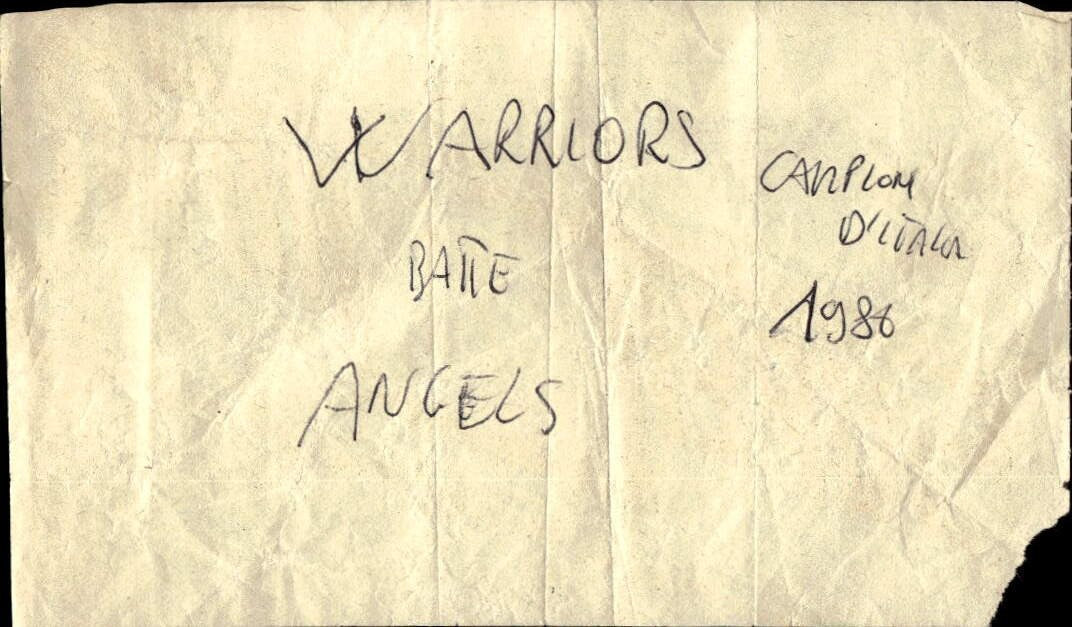 WARRIORS
BATTE
ANGELS
CAMPIONI
D'ITALIA
1986